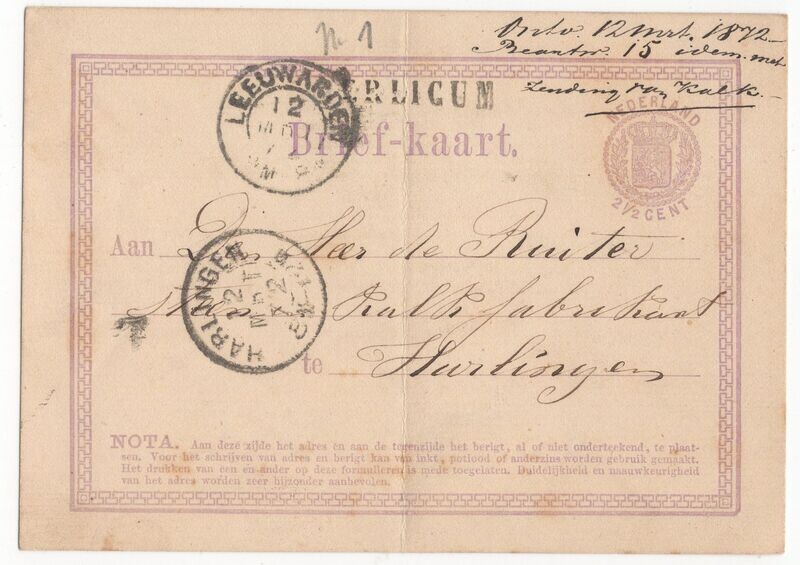 No 1
Ontv. 12 mrt. 1872
Beantw. 15 idem met
Zending van Kalk.
LEEUWARDEN
12
MRT
ERLICUM
NEDERLAND
2½ CENT
Brief-kaart.
Aan Den Heer de Ruiter
Kalk fabrikant
te Harlingen
HARLINGEN
12
MRT
72
NOTA. Aan deze zijde het adres en aan de tegenzijde het berigt, al of niet onderteekend, te plaat-
sen. Voor het schrijven van adres en berigt kan van inkt, potlood of anderzins worden gebruik gemaakt.
Het drukken van een en ander op deze formulieren is mede toegelaten. Duidelijkheid en naauwkeurigheid
van het adres worden zeer bijzonder aanbevolen.